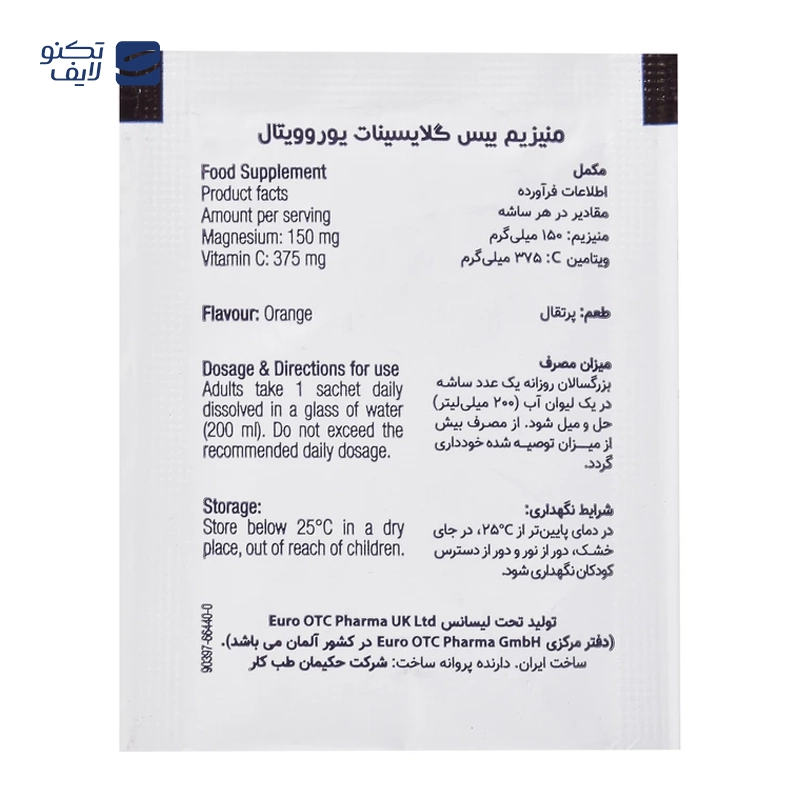 تکنو
لایف
منیزیم بیس گلایسینات یوروویتال
Food Supplement
Product facts
Amount per serving
Magnesium: 150 mg
Vitamin C: 375 mg
مکمل
اطلاعات فرآورده
مقادیر در هر ساشه
منیزیم: ۱۵۰ میلی‌گرم
ویتامین C: ۳۷۵ میلی‌گرم
Flavour: Orange
طعم: پرتقال
Dosage & Directions for use
Adults take 1 sachet daily
dissolved in a glass of water
(200 ml). Do not exceed the
recommended daily dosage.
میزان مصرف
بزرگسالان روزانه یک عدد ساشه
در یک لیوان آب (۲۰۰ میلی‌لیتر)
حل و میل شود. از مصرف بیش
از میـــزان توصیـه شده خودداری
گردد.
Storage:
Store below 25°C in a dry
place, out of reach of children.
شرایط نگهداری:
در دمای پایین‌تر از ۲۵°C، در جای
خشک، دور از نور و دور از دسترس
کودکان نگهداری شود.
تولید تحت لیسانس Euro OTC Pharma UK Ltd
(دفتر مرکزی Euro OTC Pharma GmbH در کشور آلمان می باشد).
ساخت ایران. دارنده پروانه ساخت: شرکت حکیمان طب کار
90397-66440-0